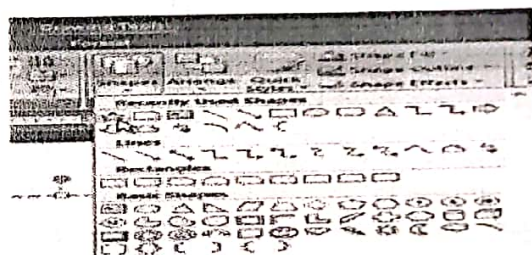 Format
Shapes Arrange Quick Styles
Shape Fill
Shape Outline
Shape Effects
Recently Used Shapes
Lines
Rectangles
Basic Shapes